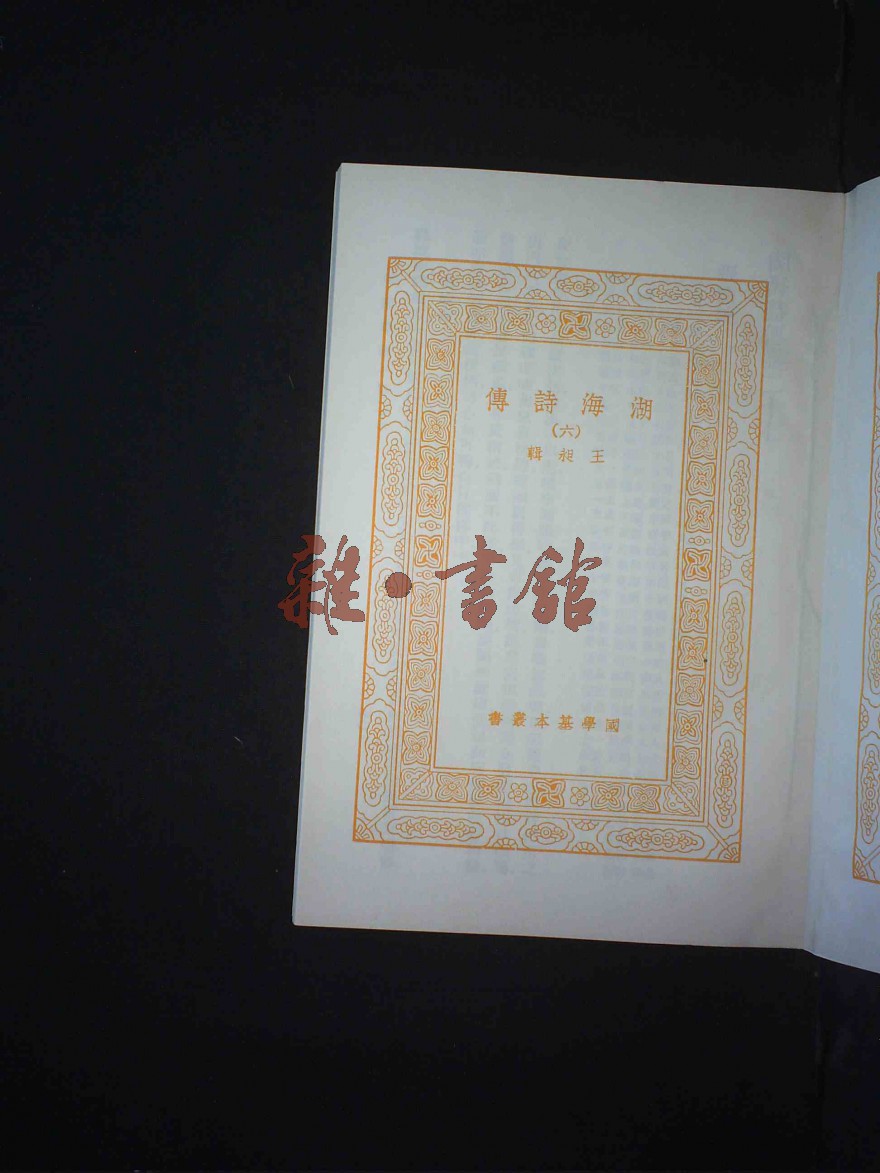 湖海詩傳
(六)
王昶輯
雜·書館
國學基本叢書